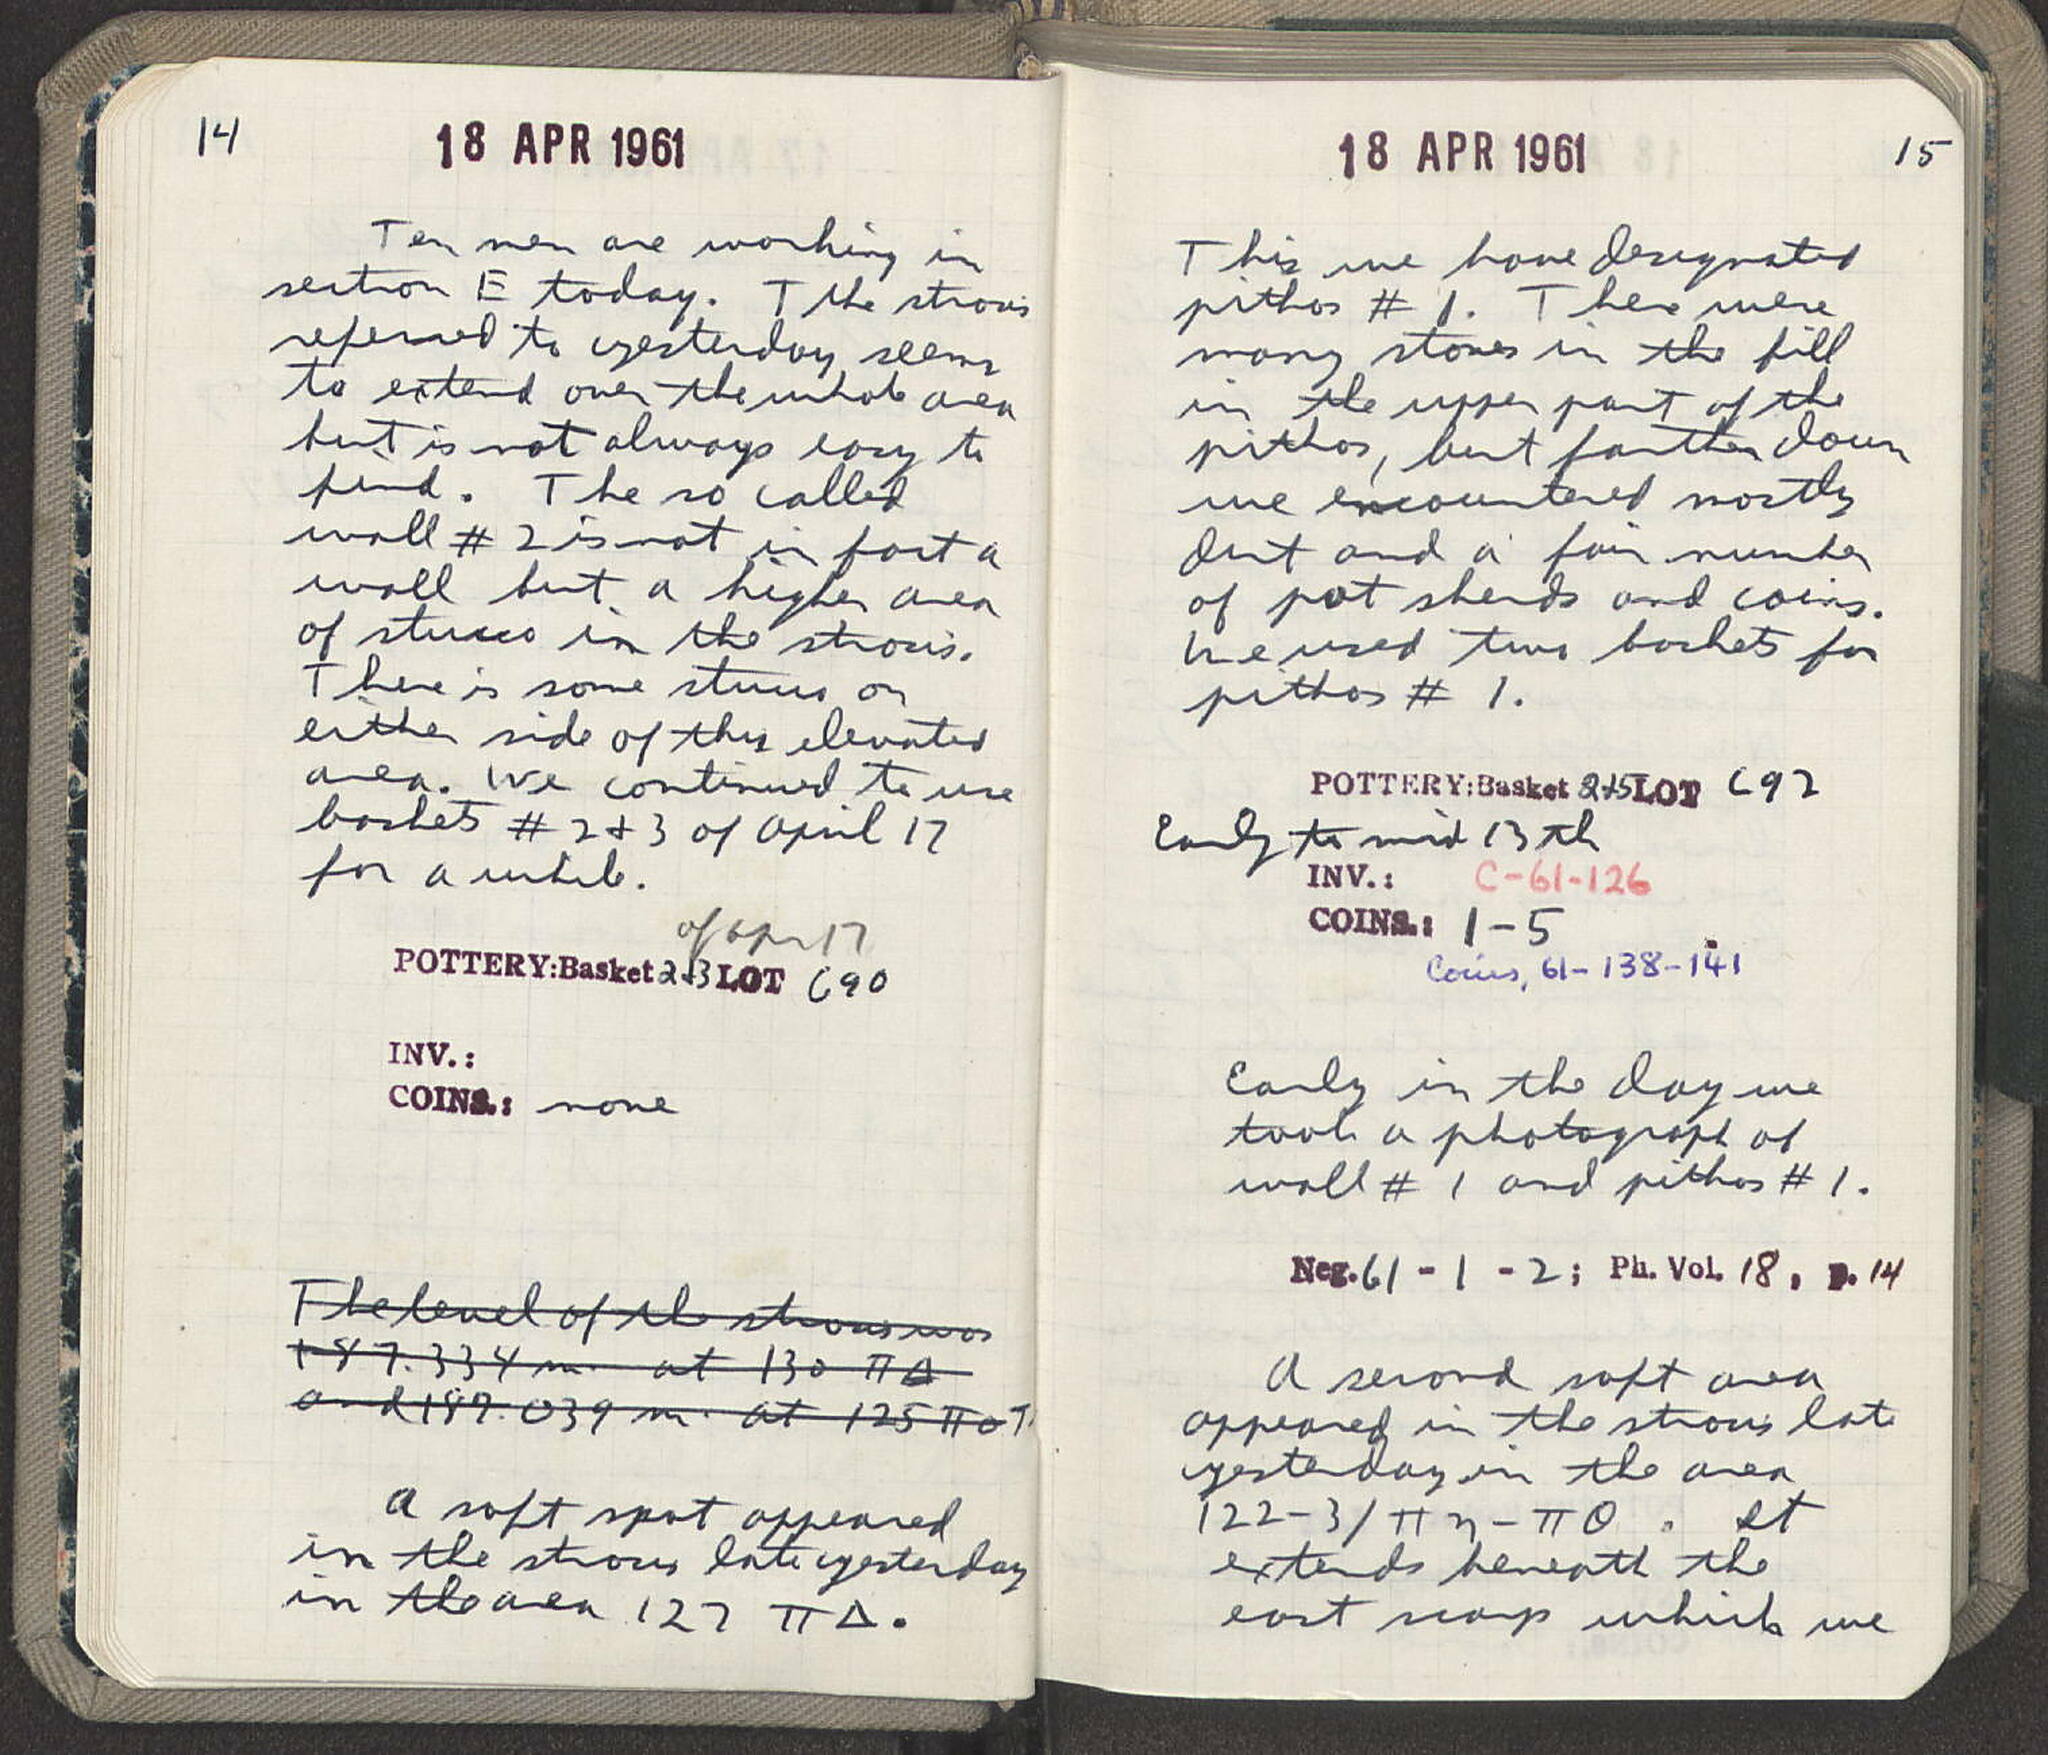 14
18 APR 1961
Ten men are working in
section E today. T the strosis
referred to yesterday seems
to extend over the whole area
but is not always easy to
find. The so called
wall # 2 is not in fact a
wall but a higher area
of stucco in the strosis.
There is some stucco on
either side of this elevated
area. We continued to use
baskets # 2 & 3 of April 17
for a while.
of Apr 17
POTTERY: Basket 2+3 LOT C90
INV.:
COINS.: none
The level of the strosis was
187.334 m. at 130 ΠΔ
and 187.039 m. at 125 Π
A soft spot appeared
in the strosis late yesterday
in the area 127 ΠΔ.
18 APR 1961
15
This we have designated
pithos # 1. There were
many stones in the fill
in the upper part of the
pithos, but farther down
we encountered mostly
dirt and a fair number
of pot sherds and coins.
We used two baskets for
pithos # 1.
POTTERY: Basket 2+5 LOT C92
Early to mid 13th
INV.: C-61-126
COINS.: 1-5
Coins, 61-138-141
Early in the day we
took a photograph of
wall # 1 and pithos # 1.
Neg. 61 - 1 - 2; Ph. Vol. 18, p. 14
A second soft area
appeared in the strosis late
yesterday in the area
122-3/Πη-Πθ. It
extends beneath the
east scarp which we